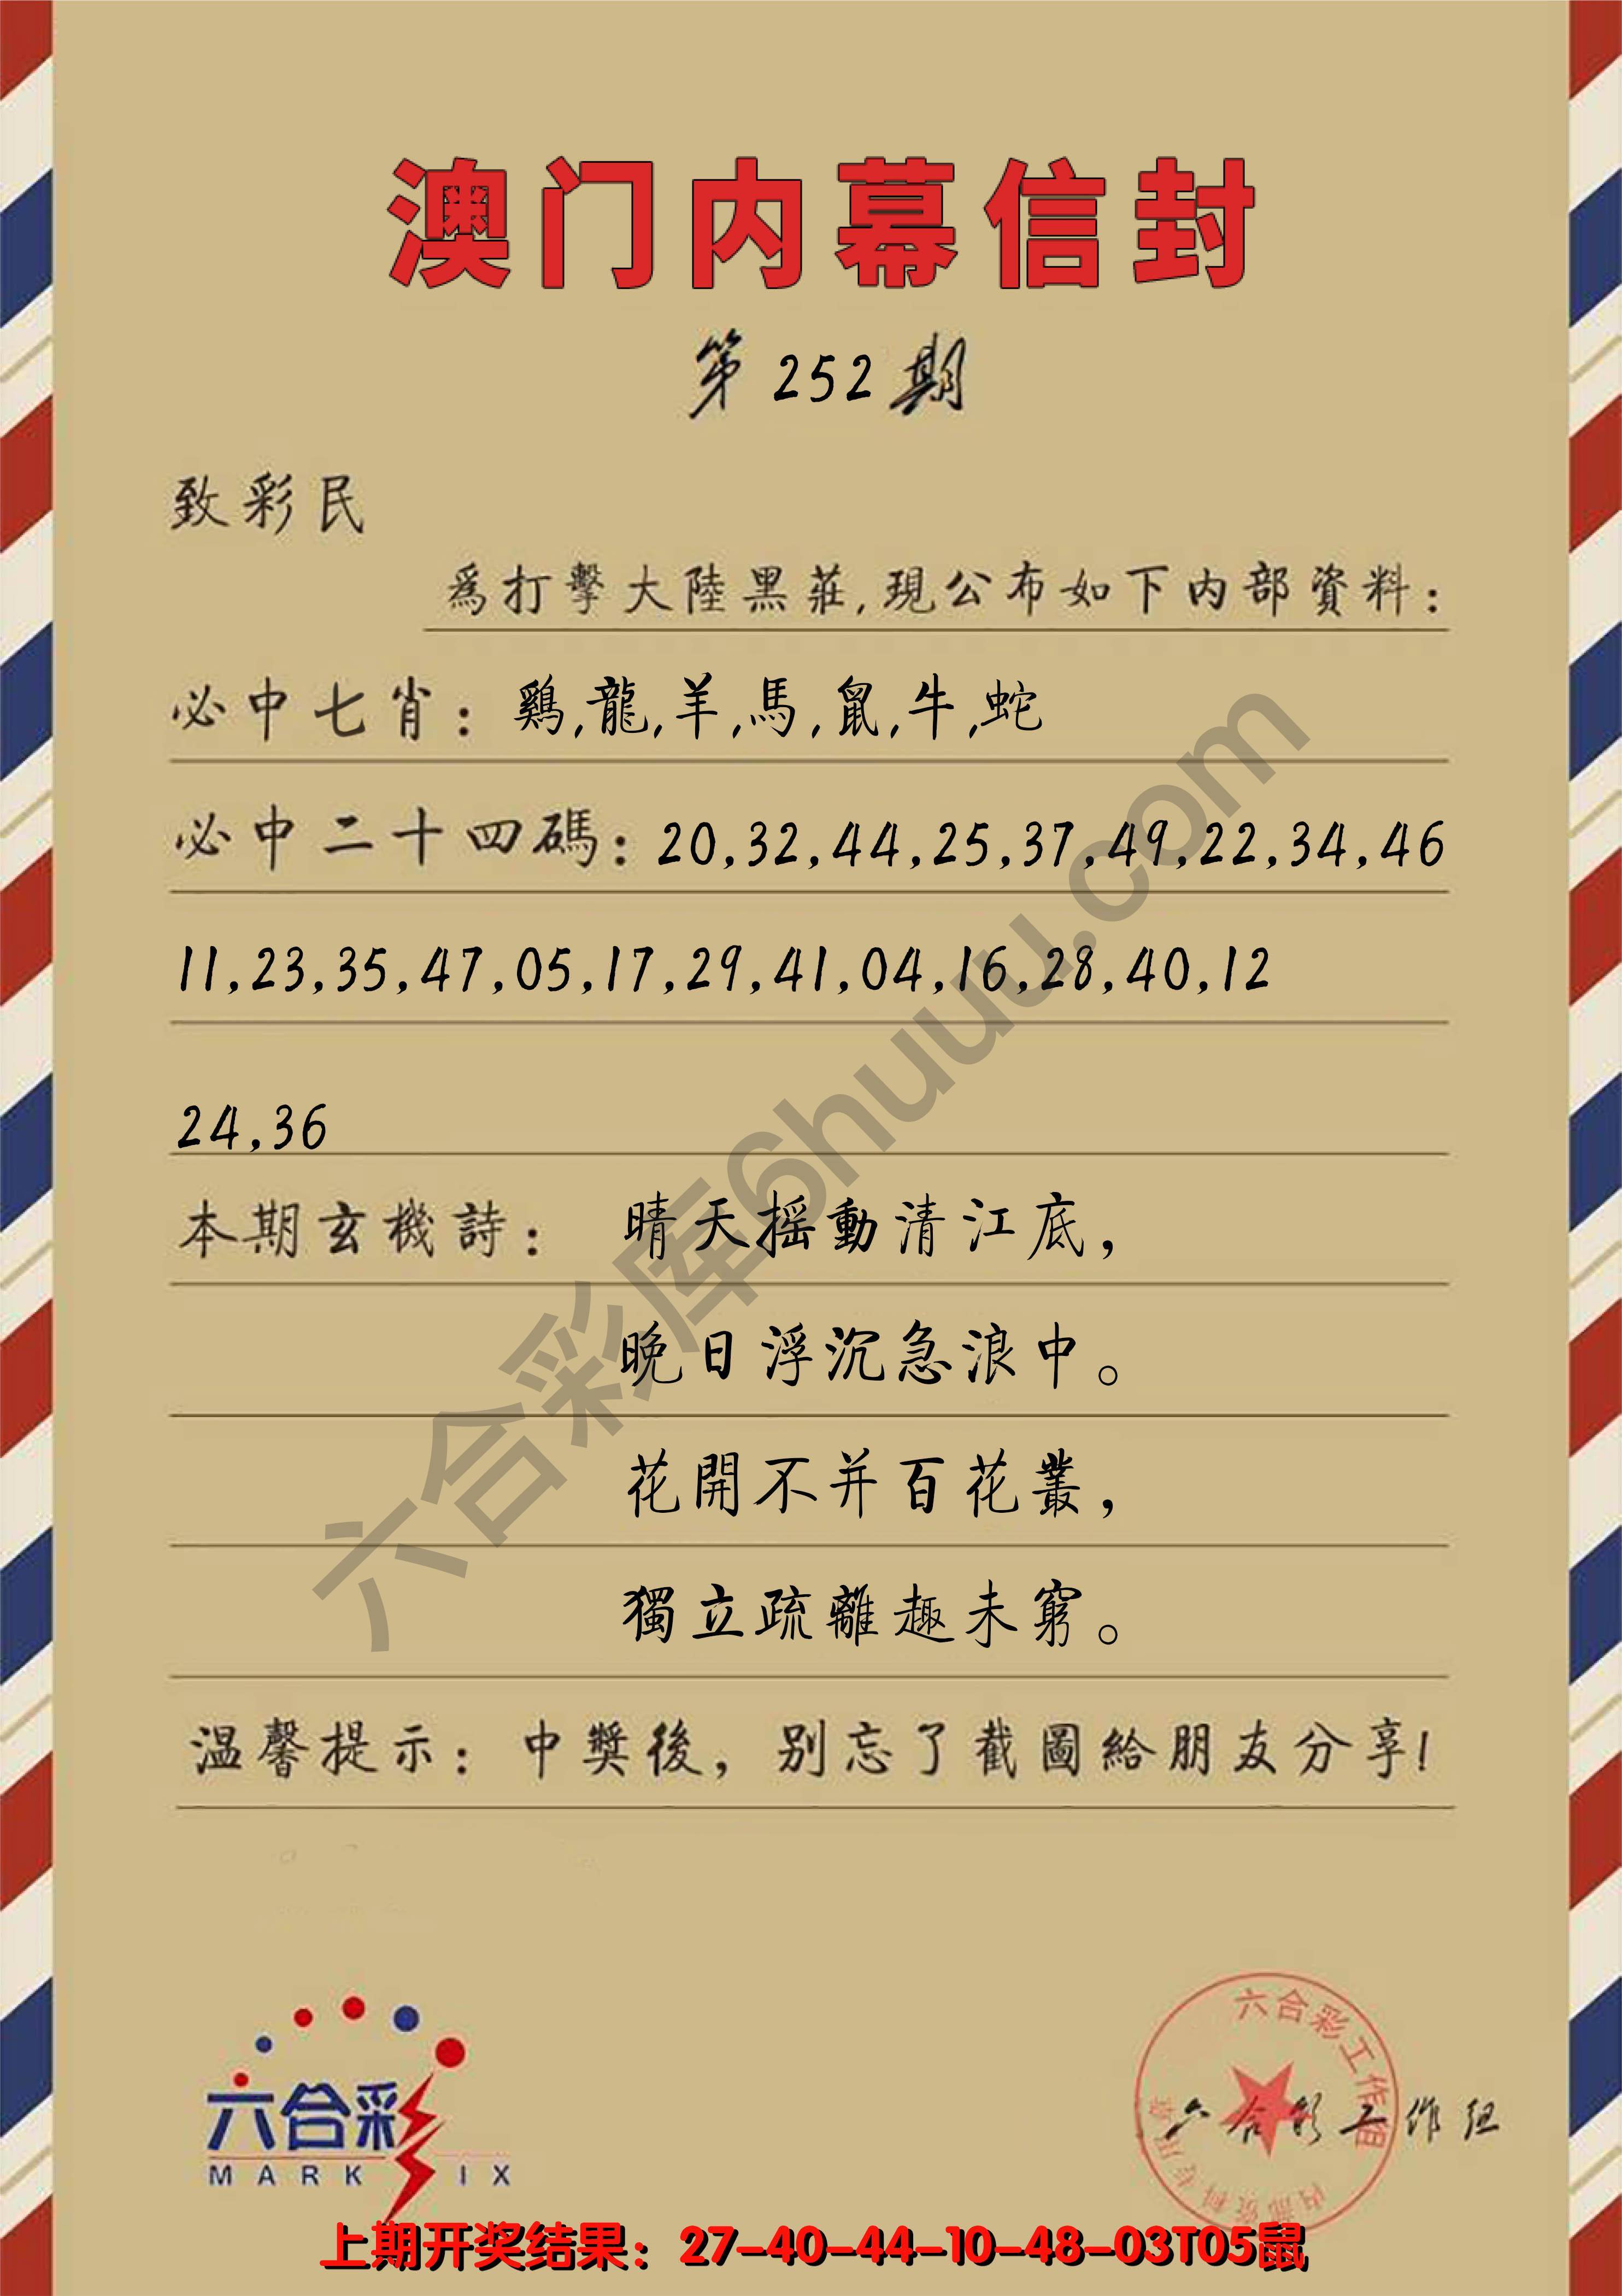 澳门内幕信封
第252期
致彩民
為打擊大陸黑莊,現公布如下内部資料:
必中七肖: 鷄,龍,羊,馬,鼠,牛,蛇
必中二十四碼: 20,32,44,25,37,49,22,34,46
11,23,35,47,05,17,29,41,04,16,28,40,12
24,36
本期玄機詩: 晴天摇動清江底,
晚日浮沉急浪中。
花開不并百花叢,
獨立疏離趣未窮。
温馨提示: 中獎後, 别忘了截圖給朋友分享!
六合彩库6huuu.com
六合彩
MARK IX
六合彩工作组
内部资料专用章
六合彩工作组
上期开奖结果: 27-40-44-10-48-03T05鼠